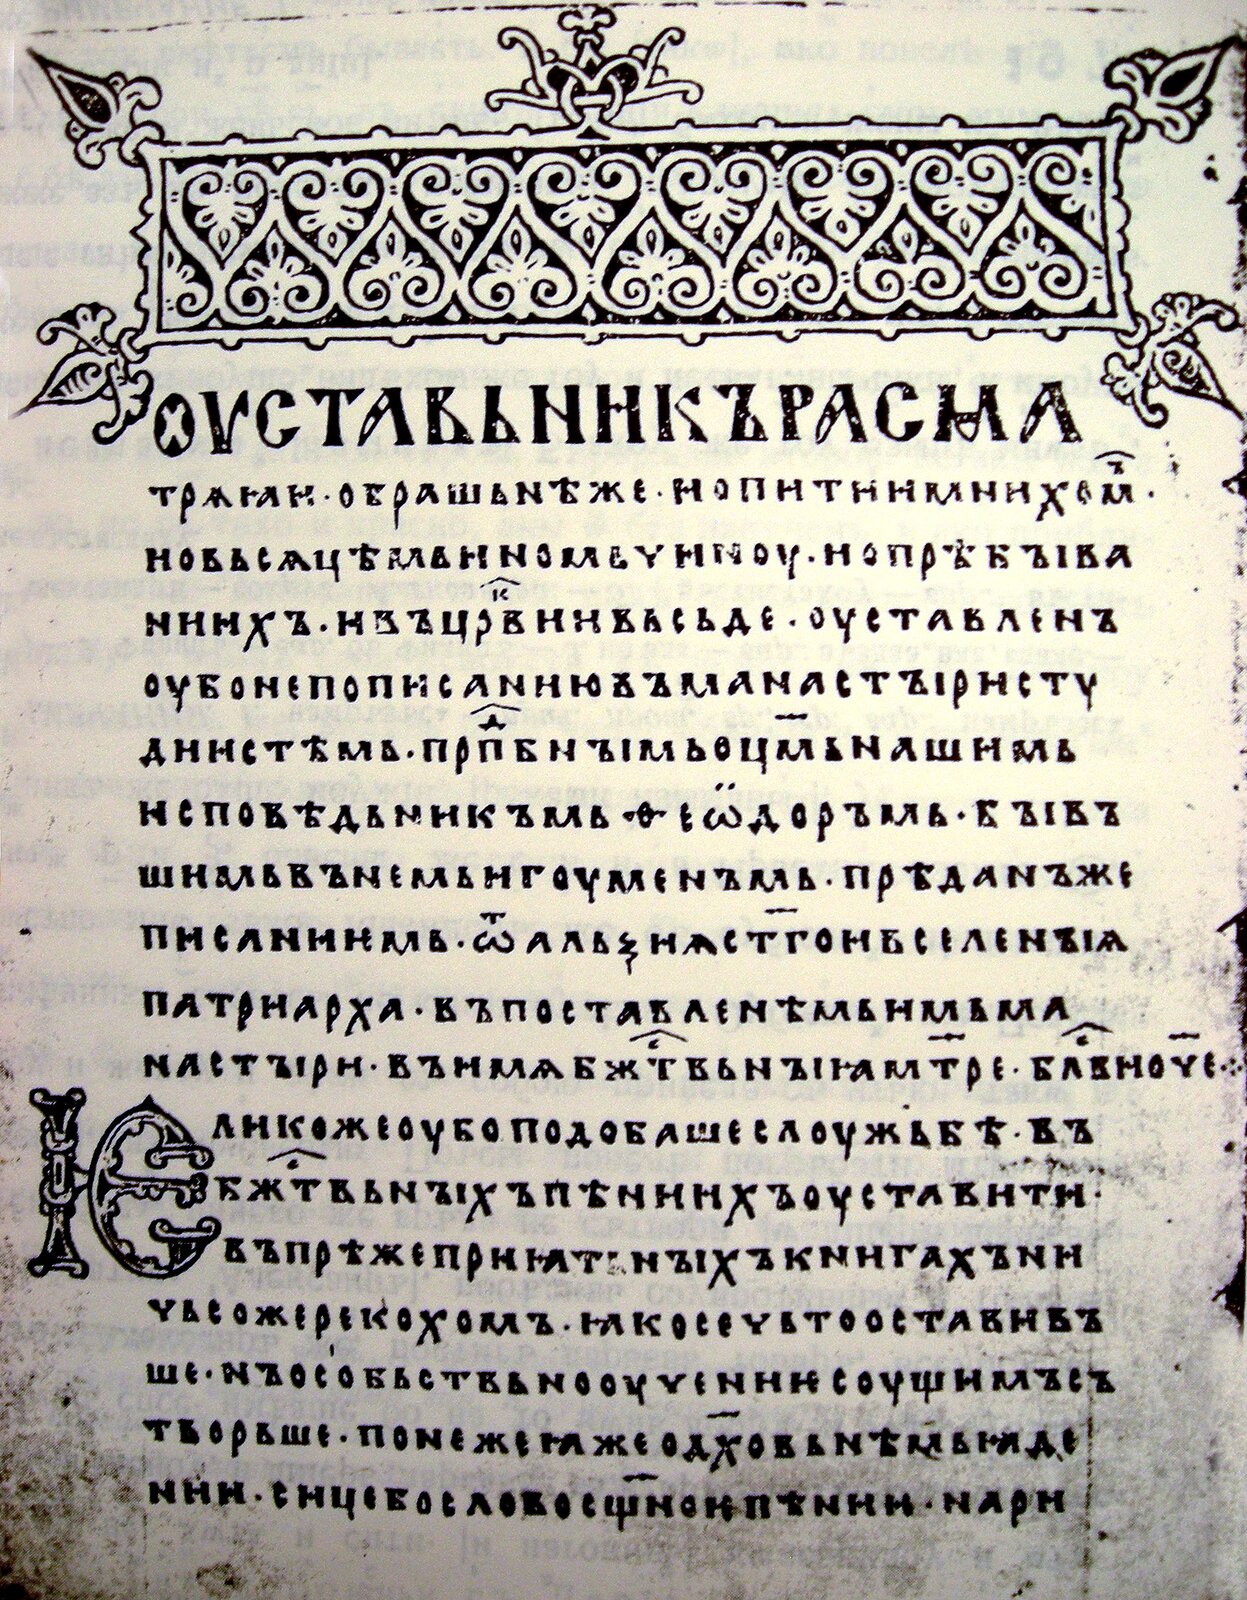 ОУСТАВЬНИКЪРАСМА
трѧꙗи·обрашьнѣже·ипитиимнихом̑ъ·
иовьсѧцѣмьиномьчиноу·иопрѣбꙑва
ниихъ·ивъцр҇к҇виивьсьде·оуставленъ
оубонепописаниювъманастꙑристу
диистѣмь·прп҇д҇бнꙑмьоц҃мьнашимь
исповѣдьникъмь·ѳеѡ̈доръмь·бꙑвъ
шимьвънемьигоуменъмь·прѣданъже
писаниимь·ѿальѯиꙗст҃гоивселенꙑꙗ
патриарха·въпоставленѣмьимьма
настꙑри·въимѧбжⷭ҇твьнꙑꙗмт҃ре·блⷭ҇виоч҃е·:·
Ѥликожеоубоподобашеслоужьбѣ·въ
бжⷭ҇твьнꙑхъпѣниихъоуставити·
въпрѣжеприꙗтьнꙑхъкнигахъни
чьсожерекохомъ·ꙗкосечьтооставивъ
ше·нъособьствьнооучениѥсоущимъсъ
творьше·понежеꙗжеодх҃овьнѣмьꙗде
нии·сицебословосщ҃ноѥпѣнии·нари